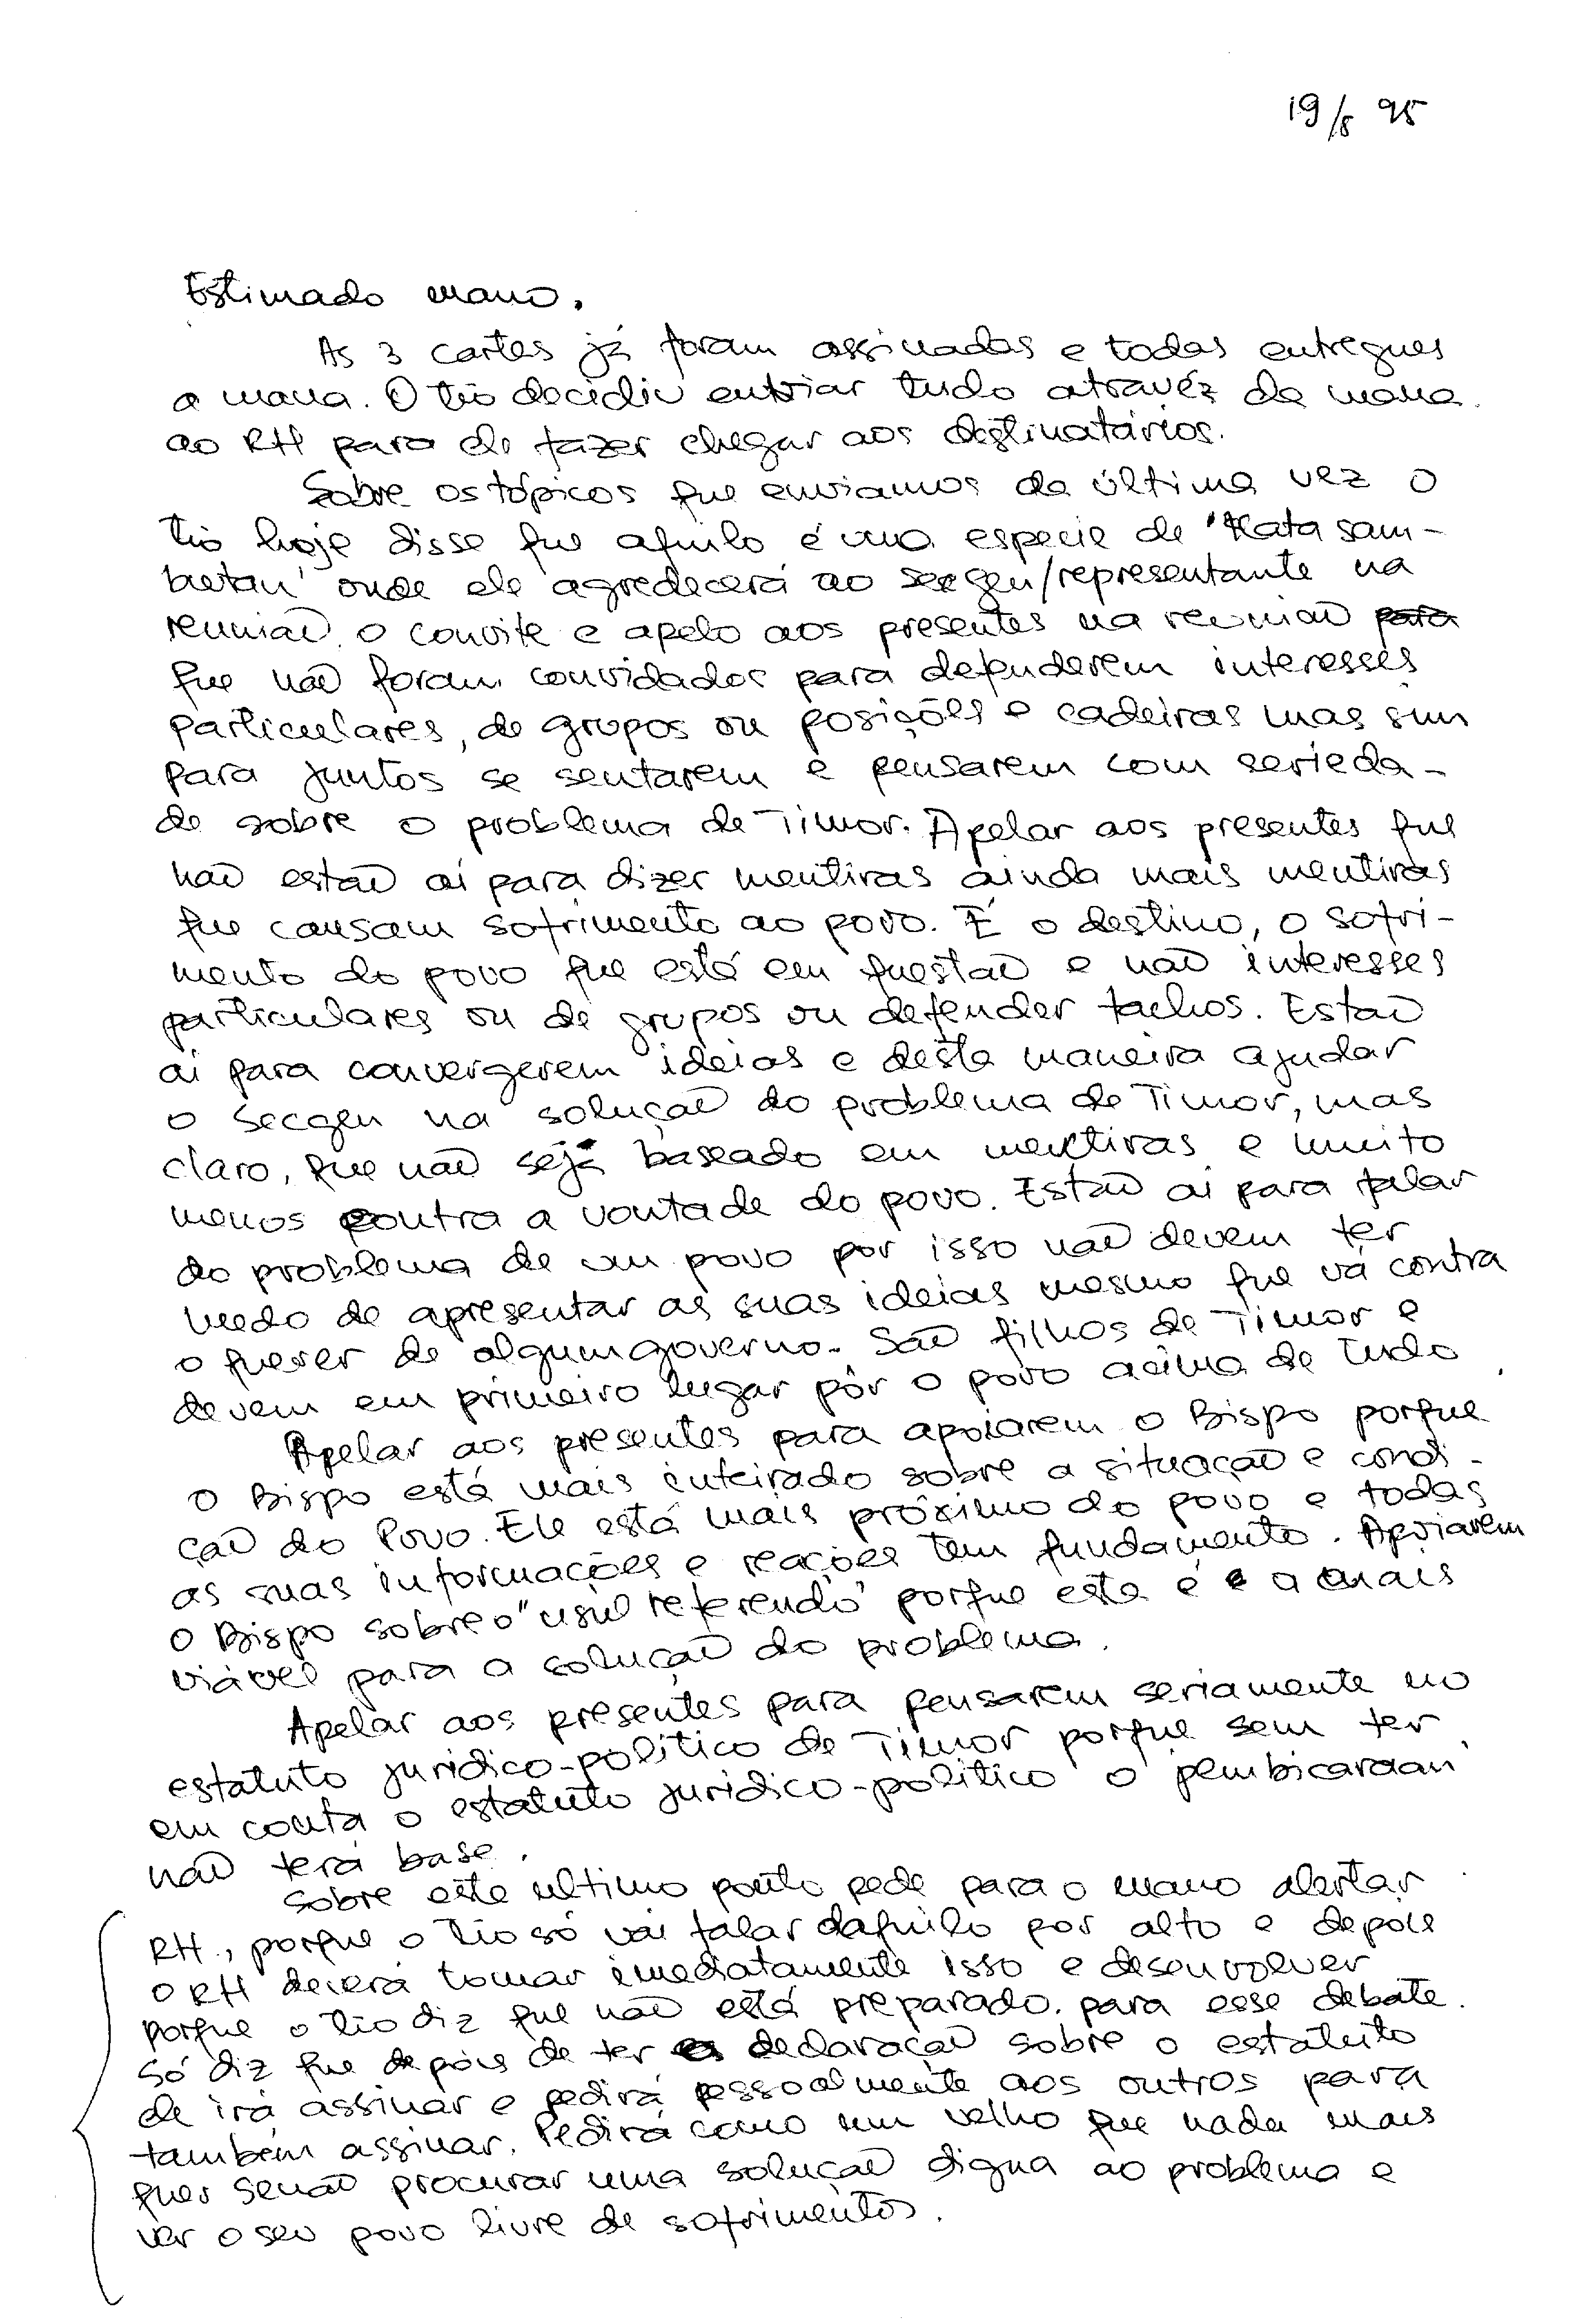 19/5 95
Estimado mano,
As 3 cartas já foram assinadas e todas entregues
a mana. O tio decidiu enviar tudo atravéz da mana
ao RH para ele fazer chegar aos destinatários.
Sobre os tópicos que enviamos da última vez o
tio hoje disse que aquilo é uma especie de "Kata sam-
butan" onde ele agradecerá ao secgen/representante na
reunião o convite e apelo aos presentes na reunião para
que não foram convidados para defenderem interesses
particulares, de grupos ou posições e cadeiras mas sim
para juntos se sentarem e pensarem com serieda-
de sobre o problema de Timor. Apelar aos presentes que
não estão ai para dizer mentiras ainda mais mentiras
que causam sofrimento ao povo. É o destino, o sofri-
mento do povo que está em questão e não interesses
particulares ou de grupos ou defender tachos. Estão
ai para convergerem ideias e desta maneira ajudar
o secgen na solução do problema de Timor, mas
claro, que não seja baseado em mentiras e muito
menos contra a vontade do povo. Estão ai para falar
do problema de um povo por isso não devem ter
medo de apresentar as suas ideias mesmo que vá contra
o querer de algum governo. São filhos de Timor e
devem em primeiro lugar pôr o povo acima de tudo.
Apelar aos presentes para apoiarem o Bispo porque
o Bispo está mais inteirado sobre a situação e condi-
ção do Povo. Ele está mais próximo do povo e todas
as suas informações e reações tem fundamento. Apoiarem
o Bispo sobre o "usul referendo" porque esta é a mais
viável para a solução do problema.
Apelar aos presentes para pensarem seriamente no
estatuto juridico-politico de Timor porque sem ter
em conta o estatuto juridico-politico o 'pembicaraan'
não terá base.
Sobre este ultimo ponto pede para o mano alertar
RH, porque o tio só vai falar daquilo por alto e depois
o RH deverá tomar imediatamente isso e desenvolver
porque o tio diz que não está preparado para esse debate.
Só diz que depois de ter a declaração sobre o estatuto
ele irá assinar e pedirá pessoalmente aos outros para
também assinar. Pedirá como um velho que nada mais
quer senão procurar uma solução digna ao problema e
ver o seu povo livre de sofrimentos.